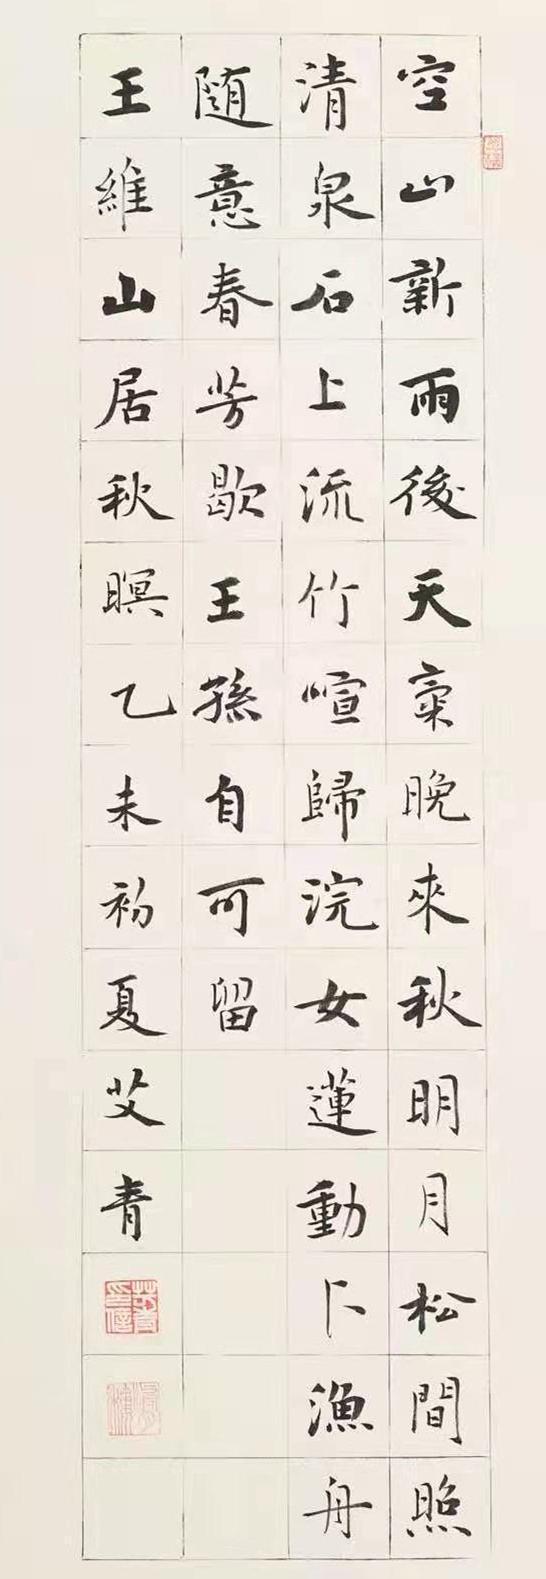 空山新雨後天氣晚來秋明月松間照
清泉石上流竹喧歸浣女蓮動下漁舟
随意春芳歇王孫自可留
王維山居秋暝乙未初夏艾青